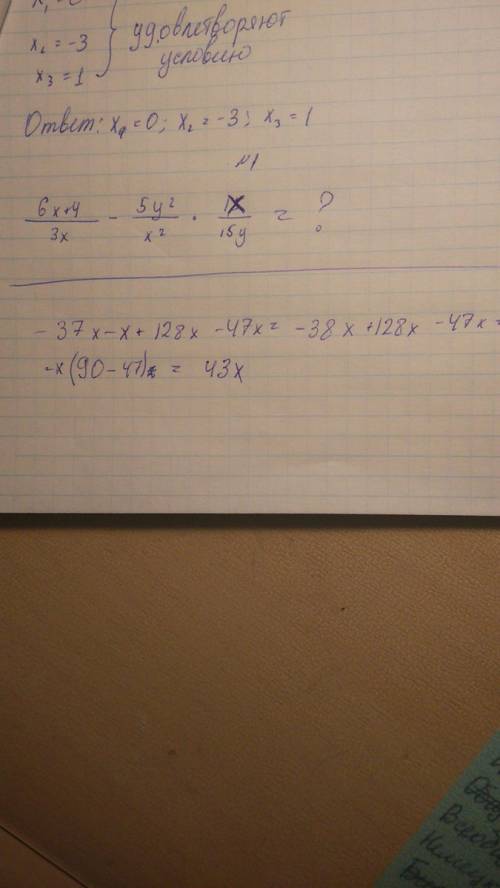 x₂ = -3
x₃ = 1
удовлетворяют
условию
Ответ: x₁ = 0; x₂ = -3; x₃ = 1
№1
(6x+y)/(3x) - (5y²)/(x²) · x/(15y) = ?
-37x - x + 128x - 47x = -38x + 128x - 47x =
= x(90-47) = 43x